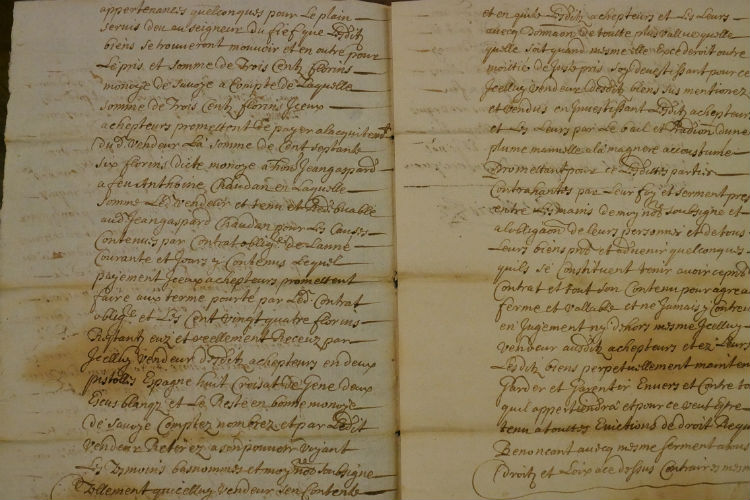 appertenances quelconques pour Le plain
servis deu au seigneur du fief que Lesditz
biens se trouveront mouvoir et en outre pour
Le pris et somme de Trois Centz florins
monoye de savoye a Compte de Laquelle
somme de Trois Centz florins Iceux
achepteurs promettent de payer a lacquit
Dud. Vendeur La somme de Cent septante
six florins dicte monoye a hon. Jeangaspard
a feu Anthoine Chaudan en Laquelle
somme Led. Vendeur et tenu et Redebuable
aud. Jeangaspard Chaudan pour Les Causes
Contenues par Contrat oblige. de Lanne
Courante et Jours y Contenus Lequel
payement Iceux achepteurs promettent
faire aux terme pourte par Led. Contrat
oblige. et Les Cent vingt quatre florins
Restant euz et reellement Receuz par
Icelluy Vendeur desditz achepteurs en deux
pistolles Espagne huit Croisat de Gene deux
Escus blangz et La Reste en bonne monoye
de Savoye Comptez nombrez et par Ledit
Vendeur Retirez a son pouvoir Voyant
Les tesmoins bas nommes et moy nore. soubsigne
Tellement quicelluy Vendeur sen Contente
et en quitte Lesditz achepteurs et Les Leurs
avecq Donnaon de toutte plus Vallue quelle
quelle soit quand mesme elle Excederoit outre
moitie de Juste pris se devestissant pour ce
Icelluy Vendeur desditz biens sus mentionez
et Vendus en Investissant Lesditz achepteurs
et Les Leurs par Le bail et tradion dune
plume manuelle a la magnere accoustume
Promettant pour ce Lesdittes parties
Contrahantes par Leur foy et serment pres
entre Les mains de moy nore. soubsigne et
a lobligaon de Leurs personnes et de tous
Leurs biens pnt et advenir quelconques
quils se Constituent tenir avoir ce pnt
Contrat et tout son Contenu pour agrea
ferme et vallable et ne Jamais y Contrev
en Jugement ny dehors mesme Icelluy
Vendeur ausditz achepteurs et ez Leurs
Lesditz biens perpetuellement mainten
Garder et Garentir Envers et Contre to
quil appertiendra et pour ce Veut Estre
tenu a touttes Evictions de droit Requ
Renoncant avecq mesme serment a tous
droitz et Loix a ce dessus Contraires mesm